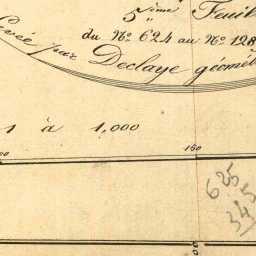 5ème Feuil
du No 624 au No 128
Levée par Declaye géomèt
1 à 1,000
00 160
625
5
34
00